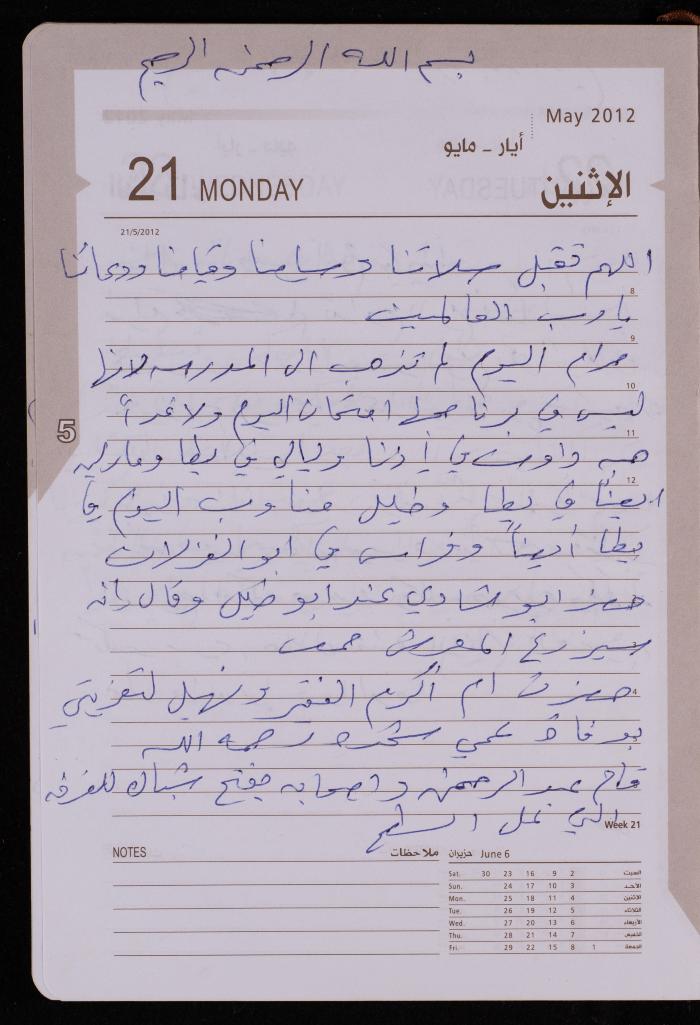 بسم الله الرحمن الرحيم
May 2012
أيار - مايو
21 MONDAY
الإثنين
21/5/2012
اللهم تقبل صلاتنا وصيامنا وقيامنا ودعائنا
8
يا رب العالمين
9
مرام اليوم لم تذهب الى المدرسه لانها
10
ليس في برنامجها امتحان اليوم ولا غداً
11
هبه داوب في إذنا وليالي في يطا
12
ايضاً في يطا وخليل مناوب اليوم في
يطا أيضاً وفراس في ابو الغزلان
حضر ابو شادي عند ابو خليل وقال بانه
سيزرع المعرش
4
حضرت ام أكرم الفقير ونهيل لتعزيتي
بوفاة عمي شحده رحمه الله
قام عبد الرحمن واصحابه بفتح شباك للغرفه
التي على السطح
5
Week 21
NOTES ملاحظات
حزيران June 6
Sat. 30 23 16 9 2 السبت
Sun. 24 17 10 3 الأحد
Mon. 25 18 11 4 الاثنين
Tue. 26 19 12 5 الثلاثاء
Wed. 27 20 13 6 الأربعاء
Thu. 28 21 14 7 الخميس
Fri. 29 22 15 8 1 الجمعة